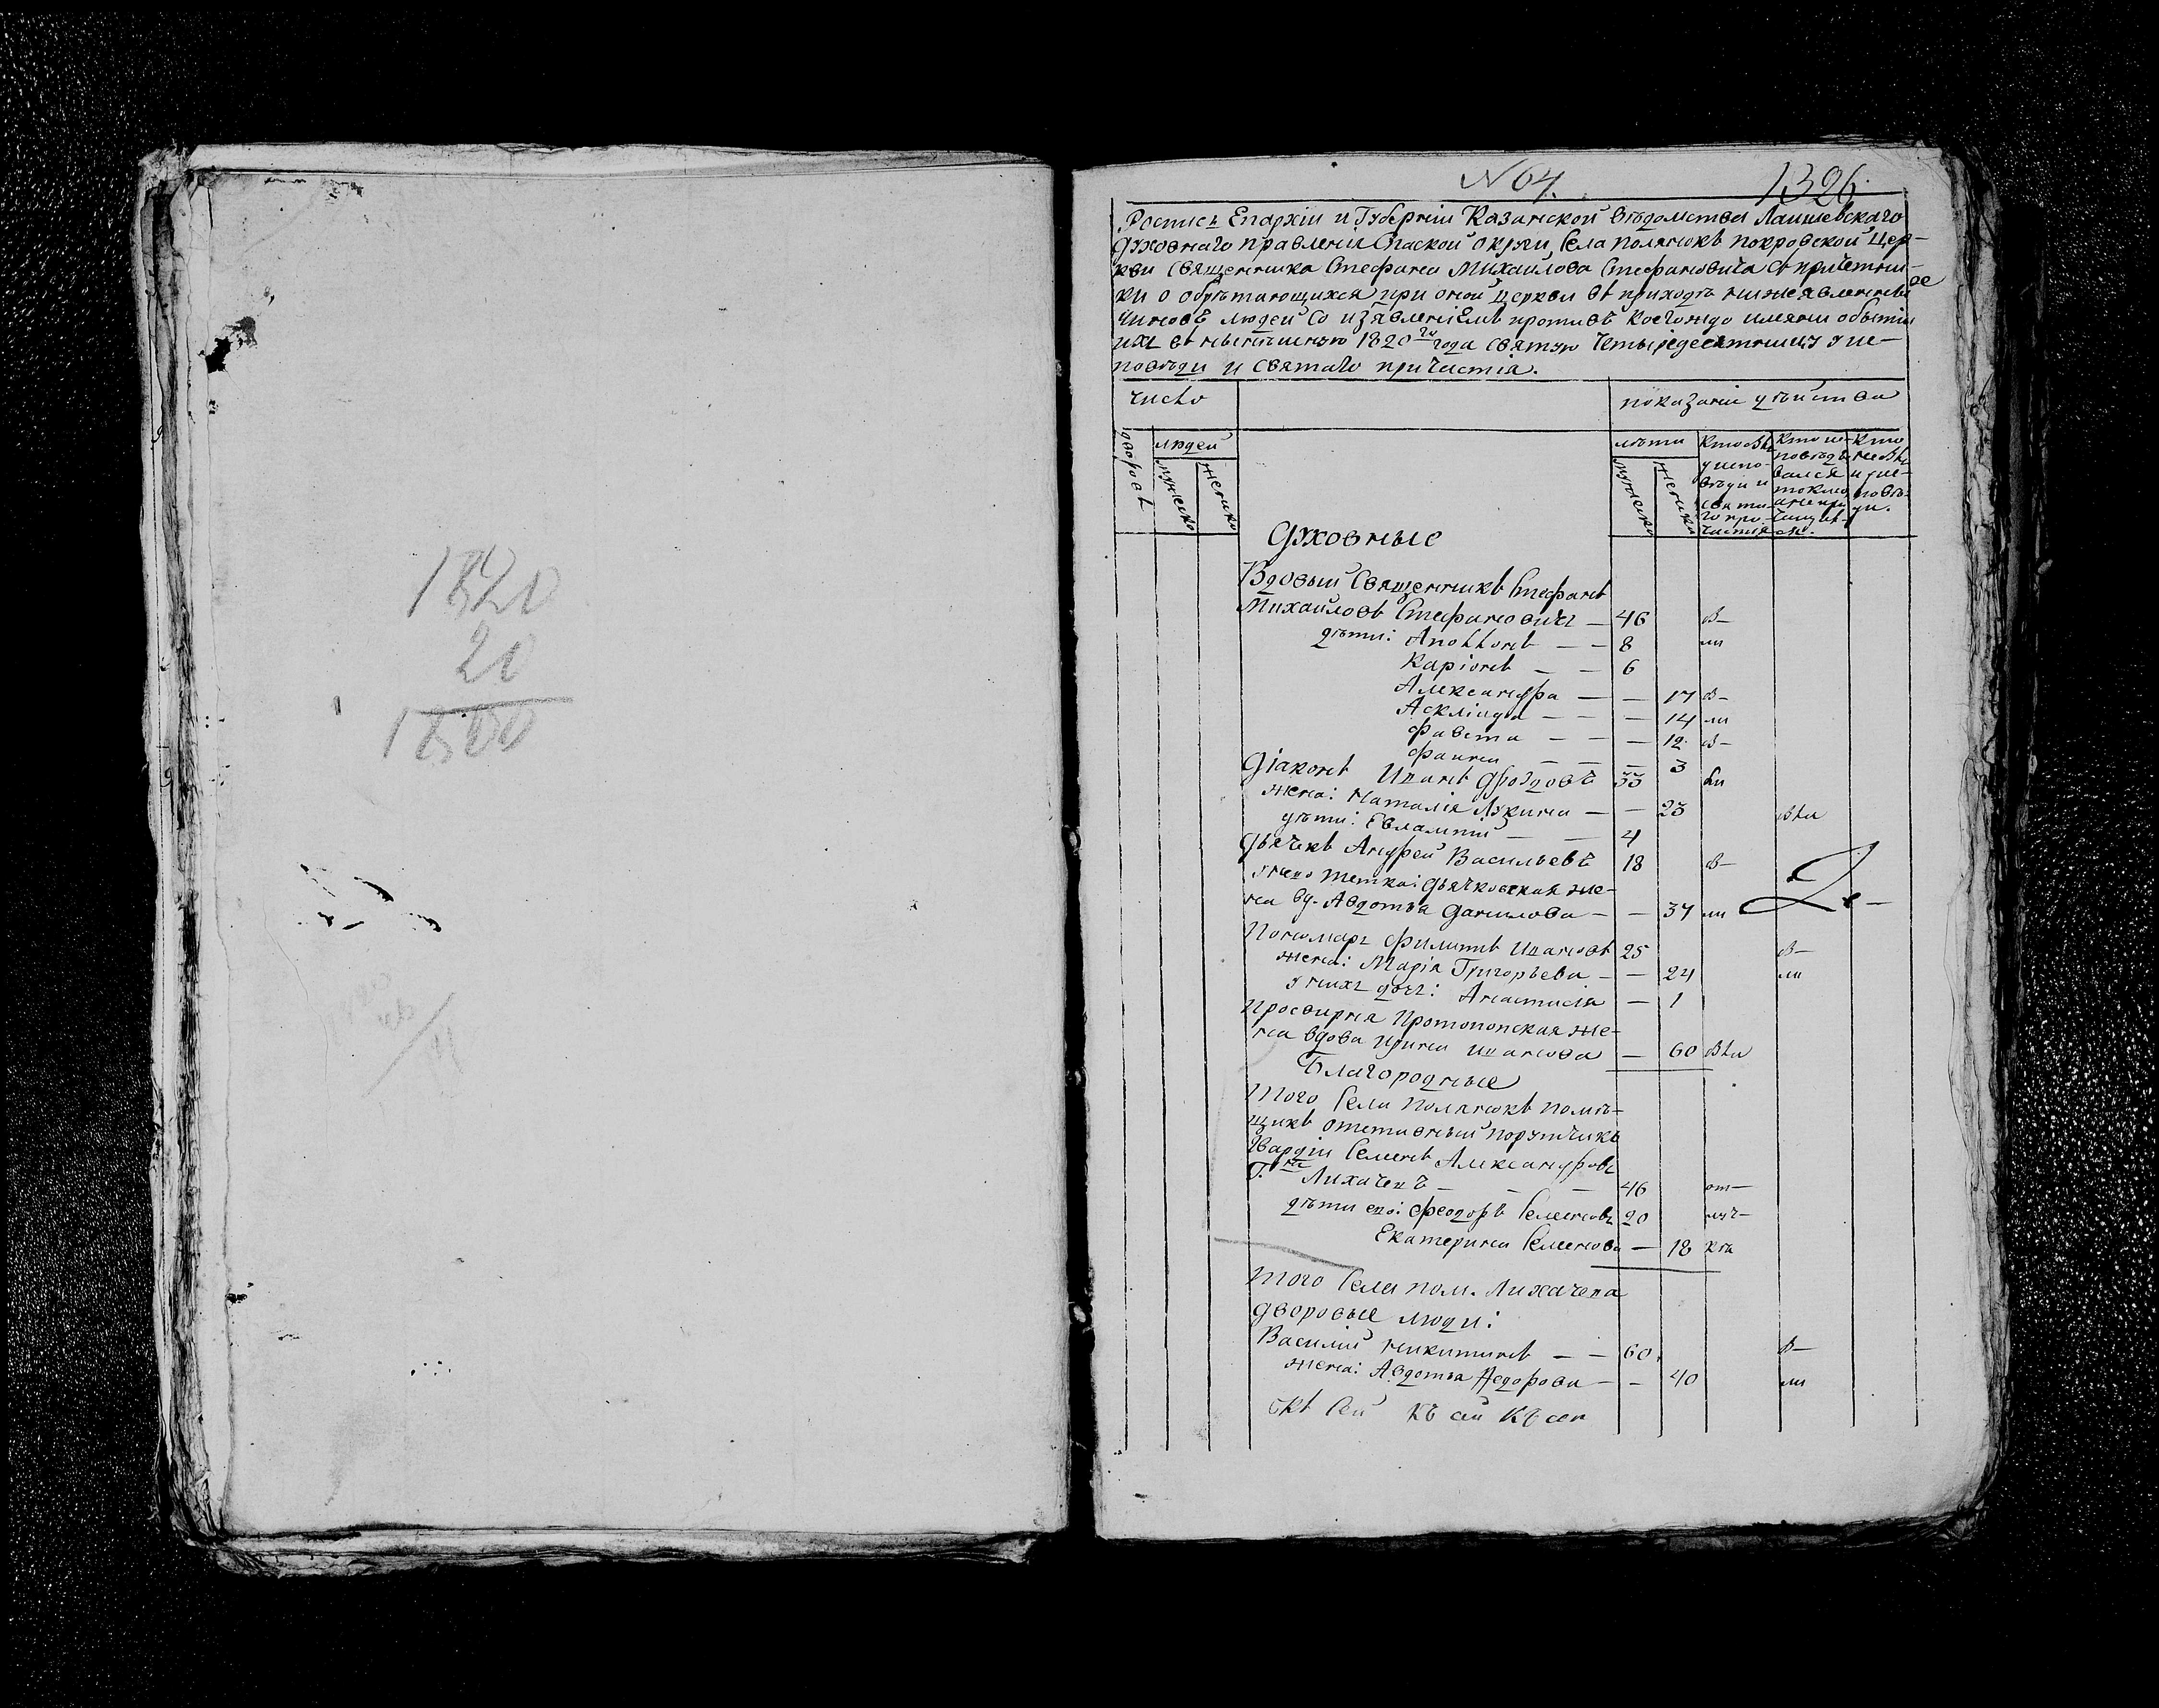 1820
20
1800
N 64.
1326.
Роспись Епархіи и Губерніи Казанской вѣдомства Лаишевскаго
духовнаго правленія Спаской округи Села Полянокъ покровской цер-
кви священника Стефана Михаилова Стефановича съ причетни-
ки о обрѣтающихся при оной церкви въ приходѣ нижеявленныхъ
чиновъ людей со изявленіемъ противъ коегождо имяни о бытіи
ихъ въ нынѣшнемъ 1820го года святую четыредесятницу у ис-
повѣди и святаго причастія.
число
показаніе дѣйства
дворовъ
людей
мужеска
женска
лѣты
мужеска
женска
Кто былъ
у испо-
вѣди и
свята-
го при-
частія
Кто ис-
повѣды-
вался
токмо
а не при-
чащал-
ся.
Кто
не былъ
и у ис-
повѣ-
ди.
Духовные
Вдовый Священникъ Стефанъ
Михайловъ Стефановичъ — 46 в—
дѣти: Аполлонъ — — 8 ли
Каріонъ — — 6
Александра — — 17 в—
Асклипіда — — — 14 ли
Фавста — — — 12 в—
Фаина — — — 3
Діаконъ Иванъ Дроздовъ 33 бы
жена: Наталія Лукина — — 23 были
дѣти: Евлампій — — 4
Дьячекъ Андрей Васильевъ 18 в—
у него тетка: дьячковская же-
на вд. Авдотья Данилова — — 37 ли
Пономарь Филиппъ Ивановъ 25 в—
жена: Марія Григорьева — — 24 ли
у нихъ дочь: Анастасія — 1
Просвирня Протопопская же-
на вдова Ирина Иванова — 60 были
Благородные
Того Села Полянокъ помѣ-
щикъ отставный порутчикъ
Гвардіи Семенъ Александровъ
Г.нъ Лихачевъ — — — 46 от—
дѣти его: Феодоръ Семеновъ 20 луч—
Екатерина Семенова — 18 ка
Того Села пом. Лихачева
дворовые люди:
Василій Никитинъ — — 60. в—
жена: Авдотья Федорова — — 40 ли